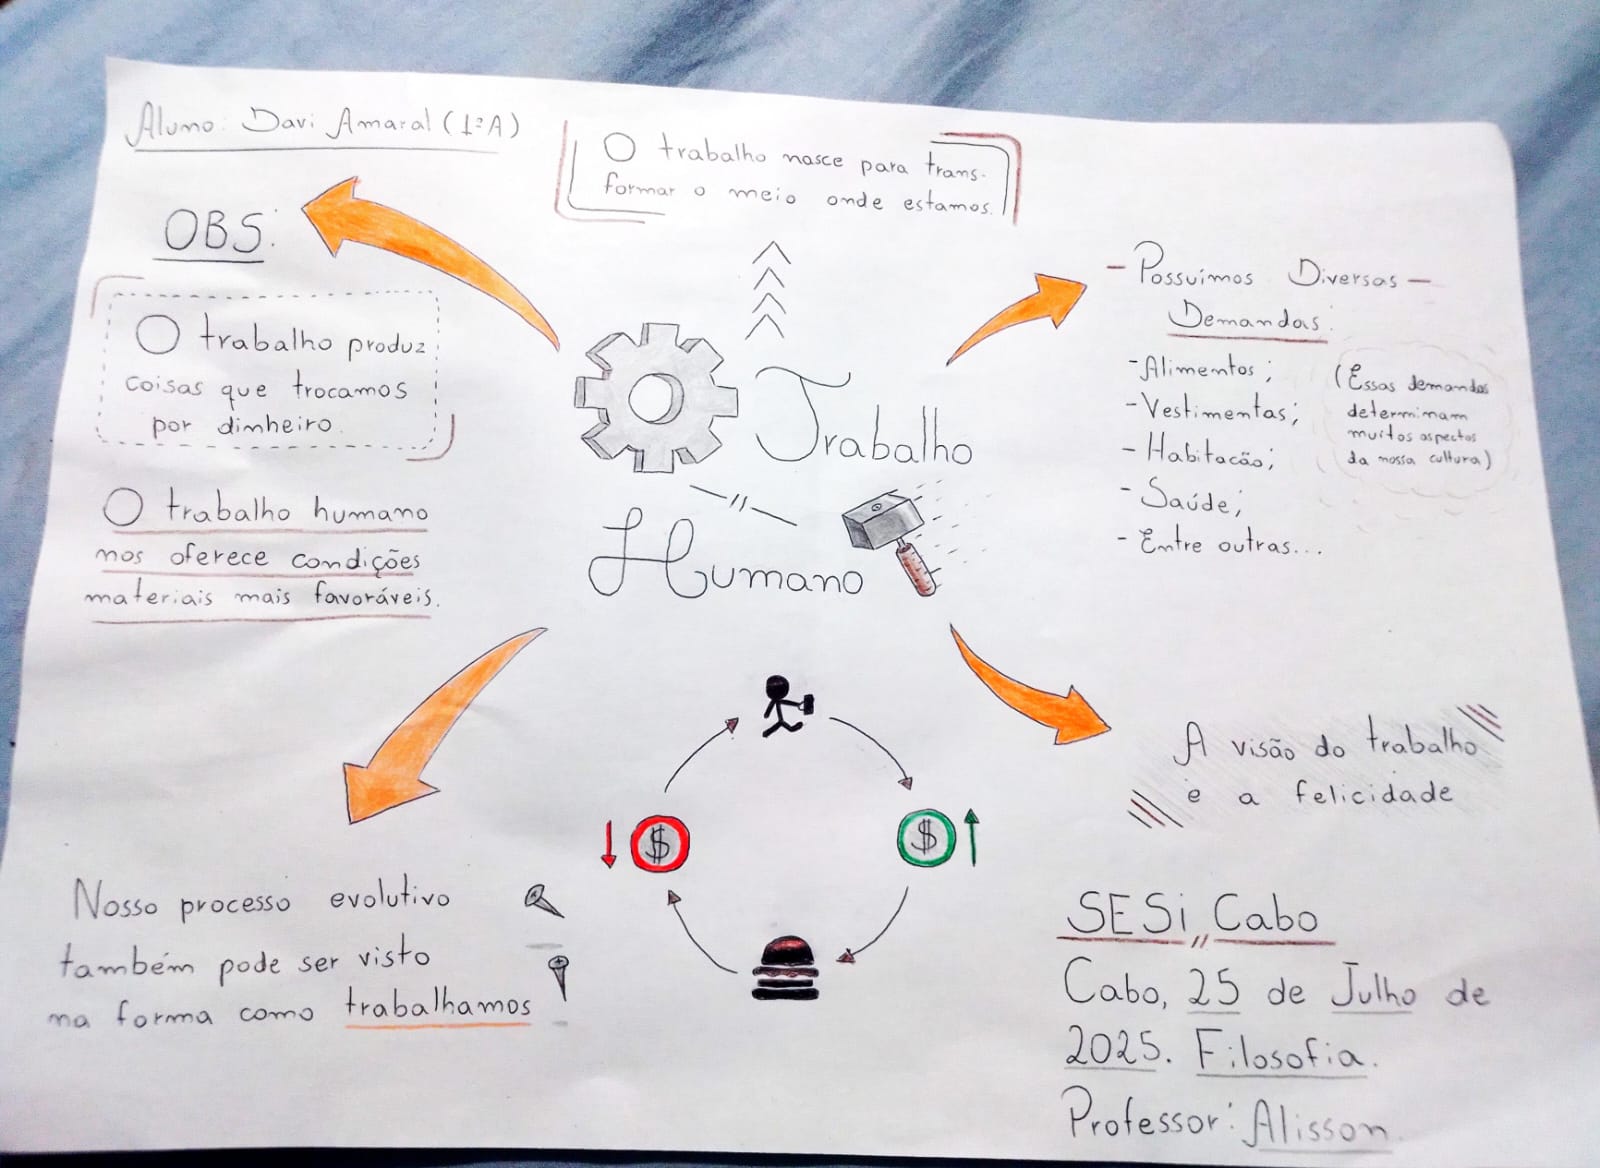 Aluno: Davi Amaral (1ºA)
O trabalho nasce para trans-
formar o meio onde estamos.
OBS:
O trabalho produz
coisas que trocamos
por dinheiro.
O trabalho humano
nos oferece condições
materiais mais favoráveis.
Trabalho
Humano
- Possuímos Diversas -
Demandas:
- Alimentos;
- Vestimentas;
- Habitacão;
- Saúde;
- Entre outras...
(Essas demandas
determinam
muitos aspectos
da nossa cultura)
A visão do trabalho
e a felicidade
$
$
Nosso processo evolutivo
também pode ser visto
na forma como trabalhamos
SESi Cabo
Cabo, 25 de Julho de
2025. Filosofia.
Professor: Alisson.